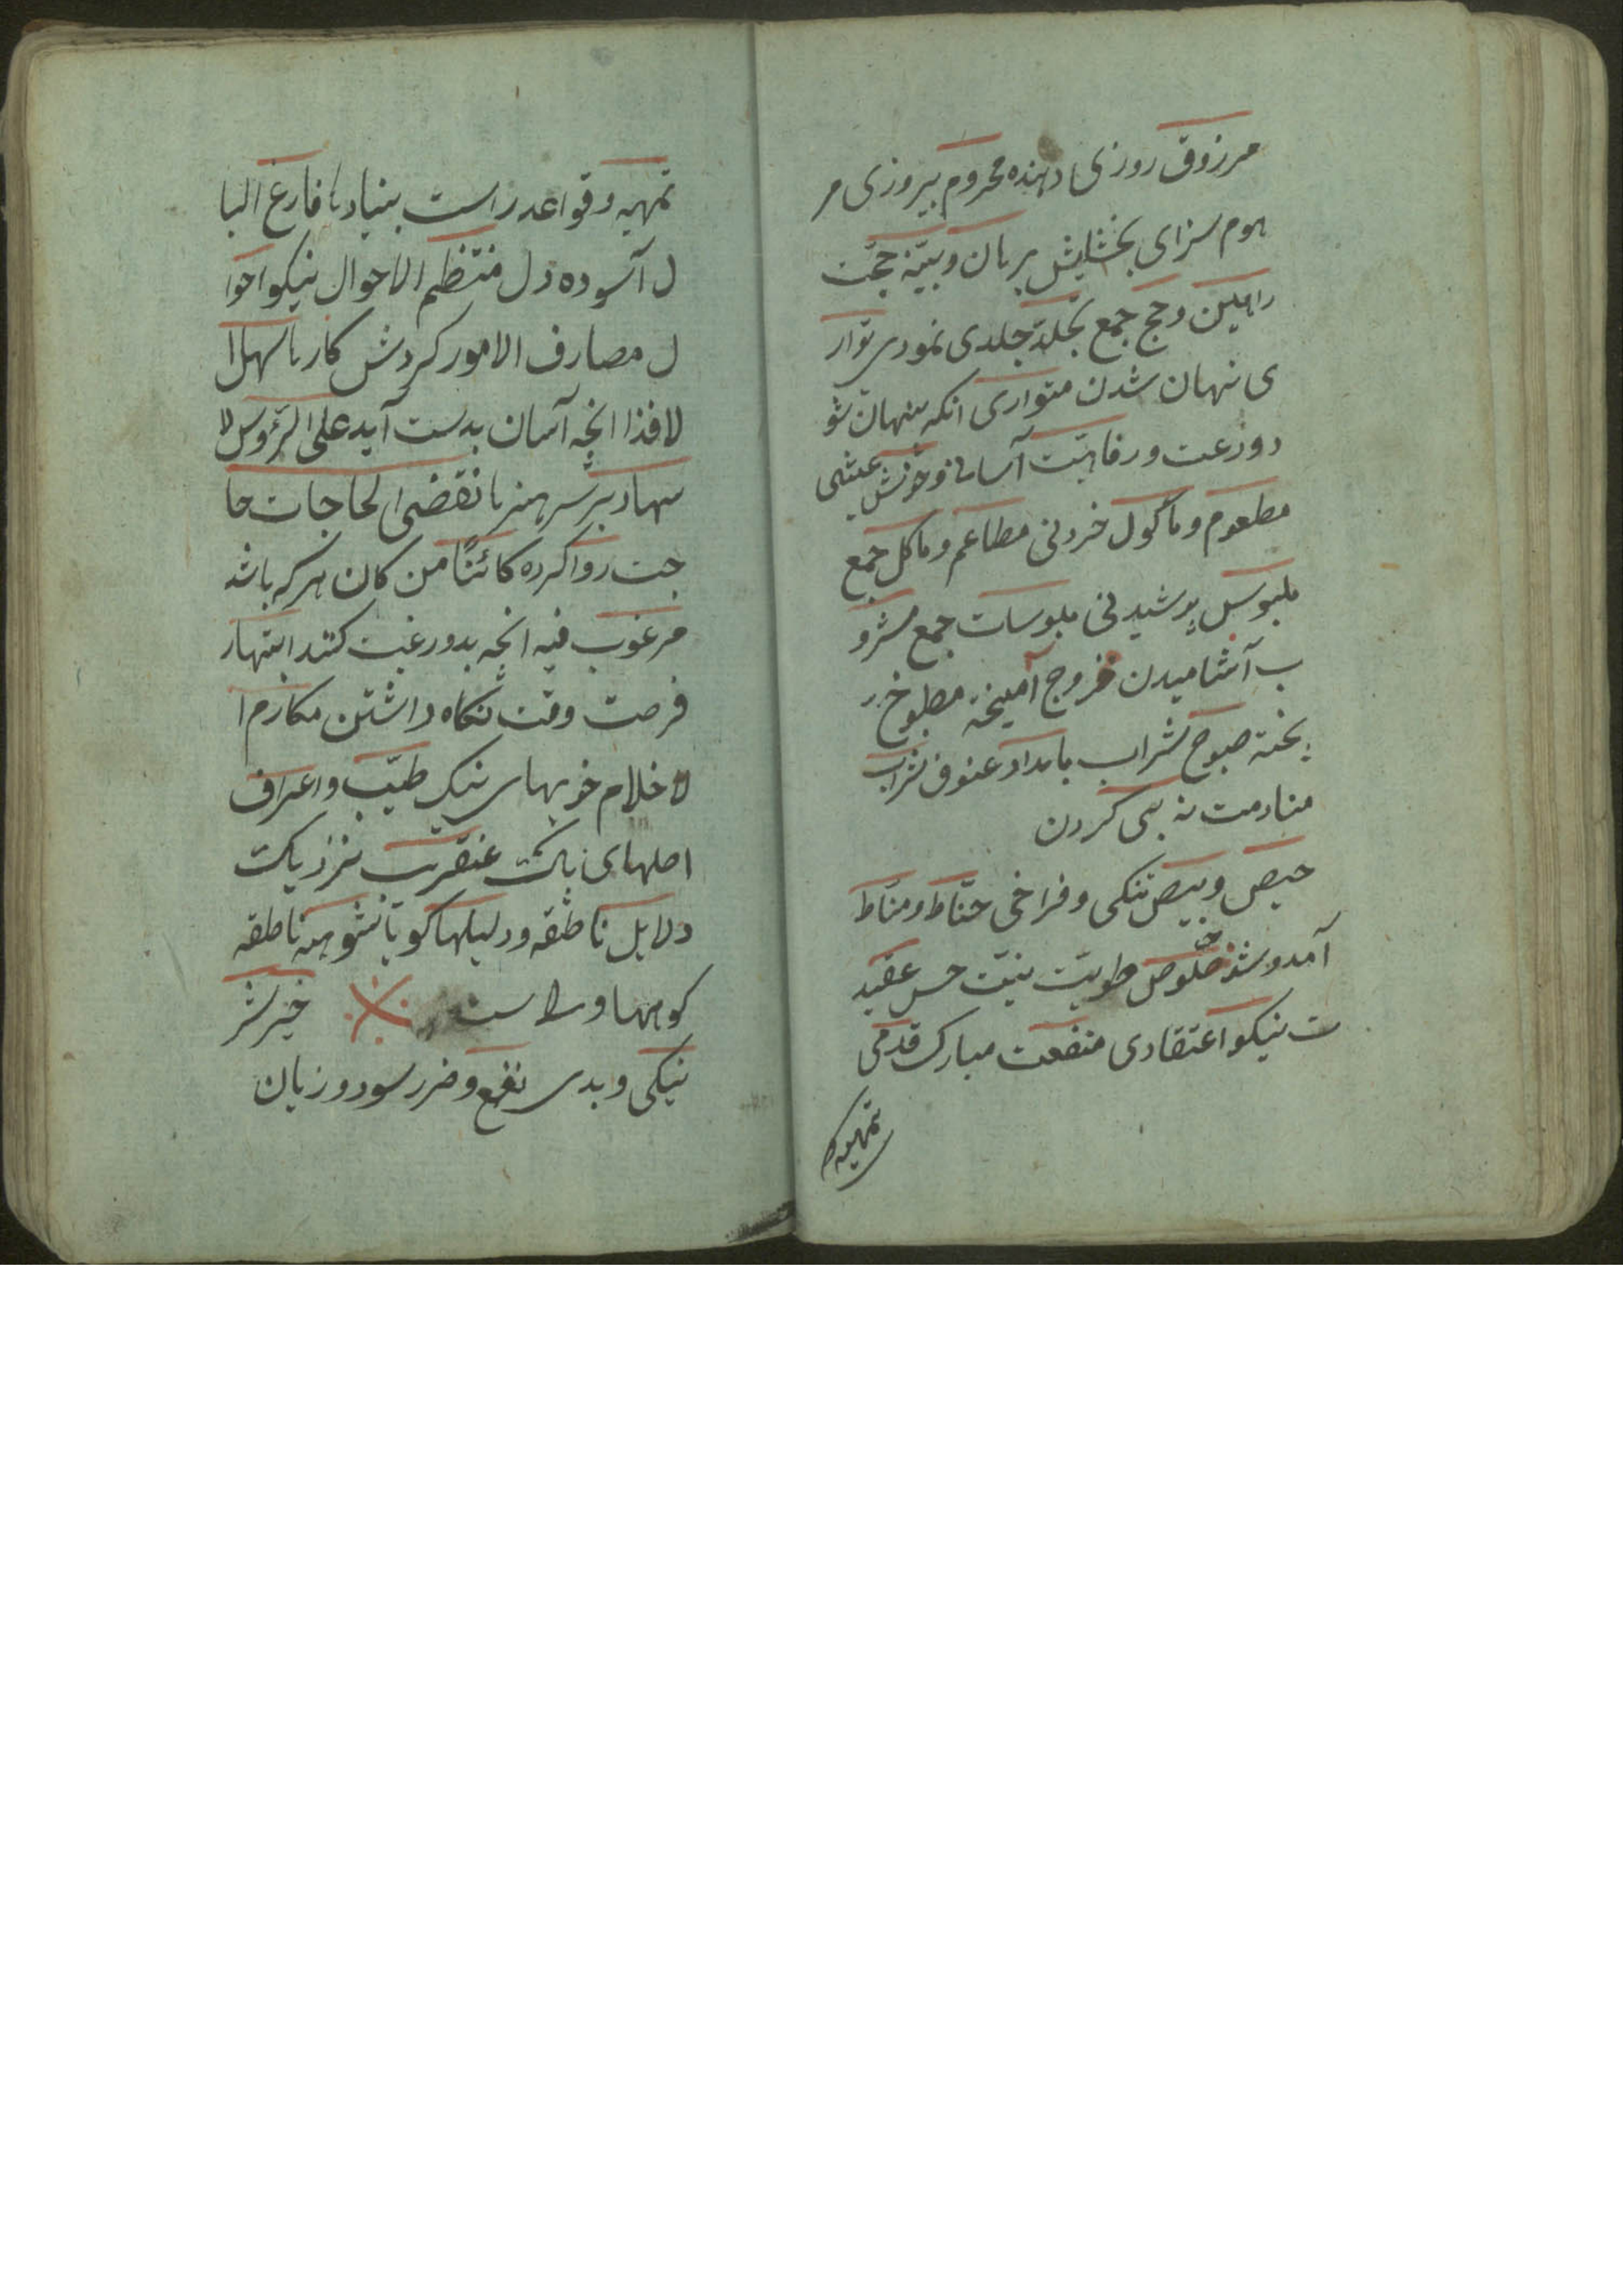 مرزوق روزی دهنده محروم بیروزی مر
هوم سزای بخشایش برهان وبیّنه حجّت
راهین وحجج جمع تجلّد جلدی نمودی توار
ی نهان شدن متواری انکه پنهان شو
د ودعت ورفاهیّت آسانی وخوش عیشی
مطعوم وماکول خردنی مطاعم وماکل جمع
ملبوس پوشیدنی ملبوسات جمع مشرو
ب آشامیدن ممزوج آمیخته مطبوخ
پخته صبوح شراب بامداد شراب
منادمت ندیمی کردن
حیص وبیص تنکی وفراخی حنّاط ومنّاط
آمد وشد خلوص طویّت نیّت حسن عقید
ت نیکو اعتقادی منفعت مبارک قدمی
تمهید و
تمهید وقواعد راست بنیادها فارغ البا
ل آسوده دل منتظم الاحوال نیکو احوا
ل مصارف الامور کردش کارها سهل ا
لافذا انچه آسان بدست آید علی الرّؤس لا
شهاد بر سر هنرها نقضی الحاجات حا
جت روا کرده کائنًا من کان هرکه باشد
مرغوب فیه انچه بدو رغبت کنند انتهاز
فرصت وقت نکاه داشتن مکارم ا
لاخلام خویهای نیک طیّب واعراف
اصلهای پاک عنقریب نزدیکت
دلایل ناطقه ودلیلها کویا شواهد ناطقه
کوهها وراست خیر شر
نیکی وبدی نفع وضرر سود وزیان